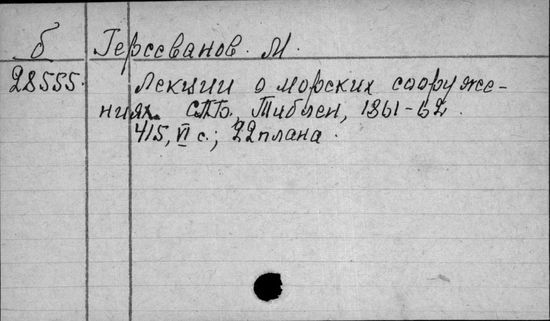 б Герсеванов. М.
28555. Лекции о морских сооруже-
ниях. СПб, Тиблен, 1861-62.
415, VI с.; 22 плана.